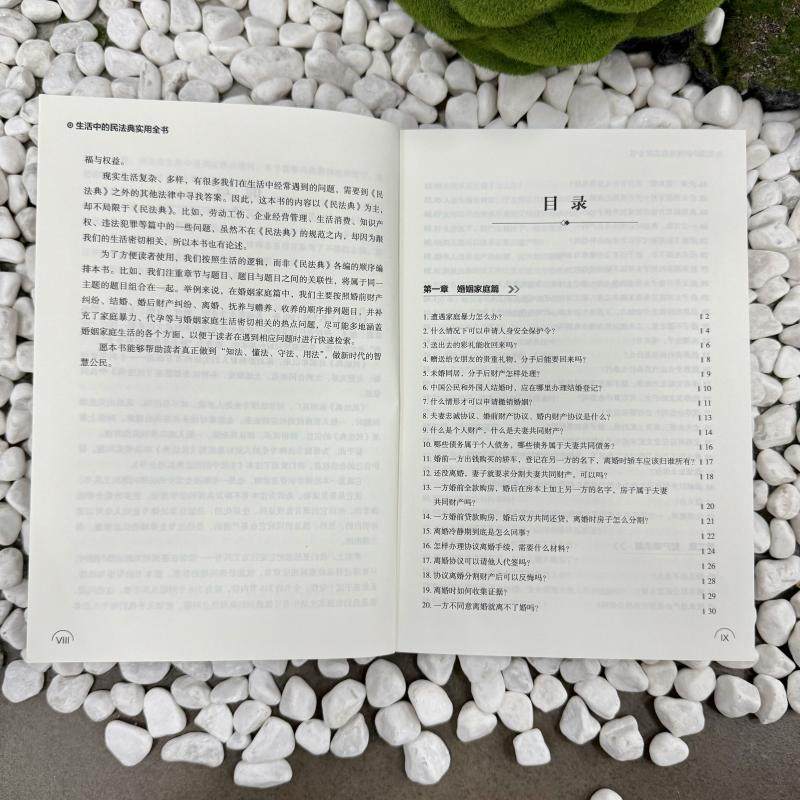 生活中的民法典实用全书
福与权益。
现实生活复杂、多样，有很多我们在生活中经常遇到的问题，需要到《民
法典》之外的其他法律中寻找答案。因此，这本书的内容以《民法典》为主，
却不局限于《民法典》。比如，劳动工伤、企业经营管理、生活消费、知识产
权、违法犯罪等篇中的一些问题，虽然不在《民法典》的规范之内，却因为跟
我们的生活密切相关，所以本书也有论述。
为了方便读者使用，我们按照生活的逻辑，而非《民法典》各编的顺序编
排本书。比如，我们注重章节与题目、题目与题目之间的关联性，将属于同一
主题的题目组合在一起。举例来说，在婚姻家庭篇中，我们主要按照婚前财产
纠纷、结婚、婚后财产纠纷、离婚、抚养与赡养、收养的顺序排列题目，并补
充了家庭暴力、代孕等与婚姻家庭生活密切相关的热点问题，尽可能多地涵盖
婚姻家庭生活的各个方面，以便于读者在遇到相应问题时进行快速检索。
愿本书能够帮助读者真正做到“知法、懂法、守法、用法”，做新时代的智
慧公民。
VIII
目 录
第一章 婚姻家庭篇
1. 遭遇家庭暴力怎么办？ 2
2. 什么情况下可以申请人身安全保护令？ 4
3. 送出去的彩礼能收回来吗？ 6
4. 赠送给女朋友的贵重礼物，分手后能要回来吗？ 8
5. 未婚同居，分手后财产怎样处理？ 9
6. 中国公民和外国人结婚时，应在哪里办理结婚登记？ 10
7. 什么情形才可以申请撤销婚姻？ 11
8. 夫妻忠诚协议、婚前财产协议、婚内财产协议是什么？ 13
9. 什么是个人财产，什么是夫妻共同财产？ 14
10. 哪些债务属于个人债务，哪些债务属于夫妻共同债务？ 16
11. 婚前一方出钱购买的轿车，登记在另一方的名下，离婚时轿车应该归谁所有？ 17
12. 还没离婚，妻子就要求分割夫妻共同财产，可以吗？ 18
13. 一方婚前全款购房，婚后在房本上加上另一方的名字，房子属于夫妻
共同财产吗？ 20
14. 一方婚前贷款购房，婚后双方共同还贷，离婚时房子怎么分割？ 21
15. 离婚冷静期到底是怎么回事？ 22
16. 怎样办理协议离婚手续，需要什么材料？ 24
17. 离婚协议可以请他人代签吗？ 26
18. 协议离婚分割财产后可以反悔吗？ 28
19. 离婚时如何收集证据？ 29
20. 一方不同意离婚就离不了婚吗？ 30
IX